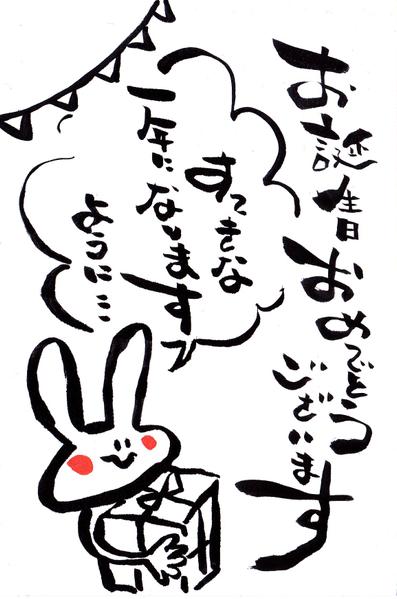 お誕生日おめでとう
ございます
すてきな
一年になります
ように…